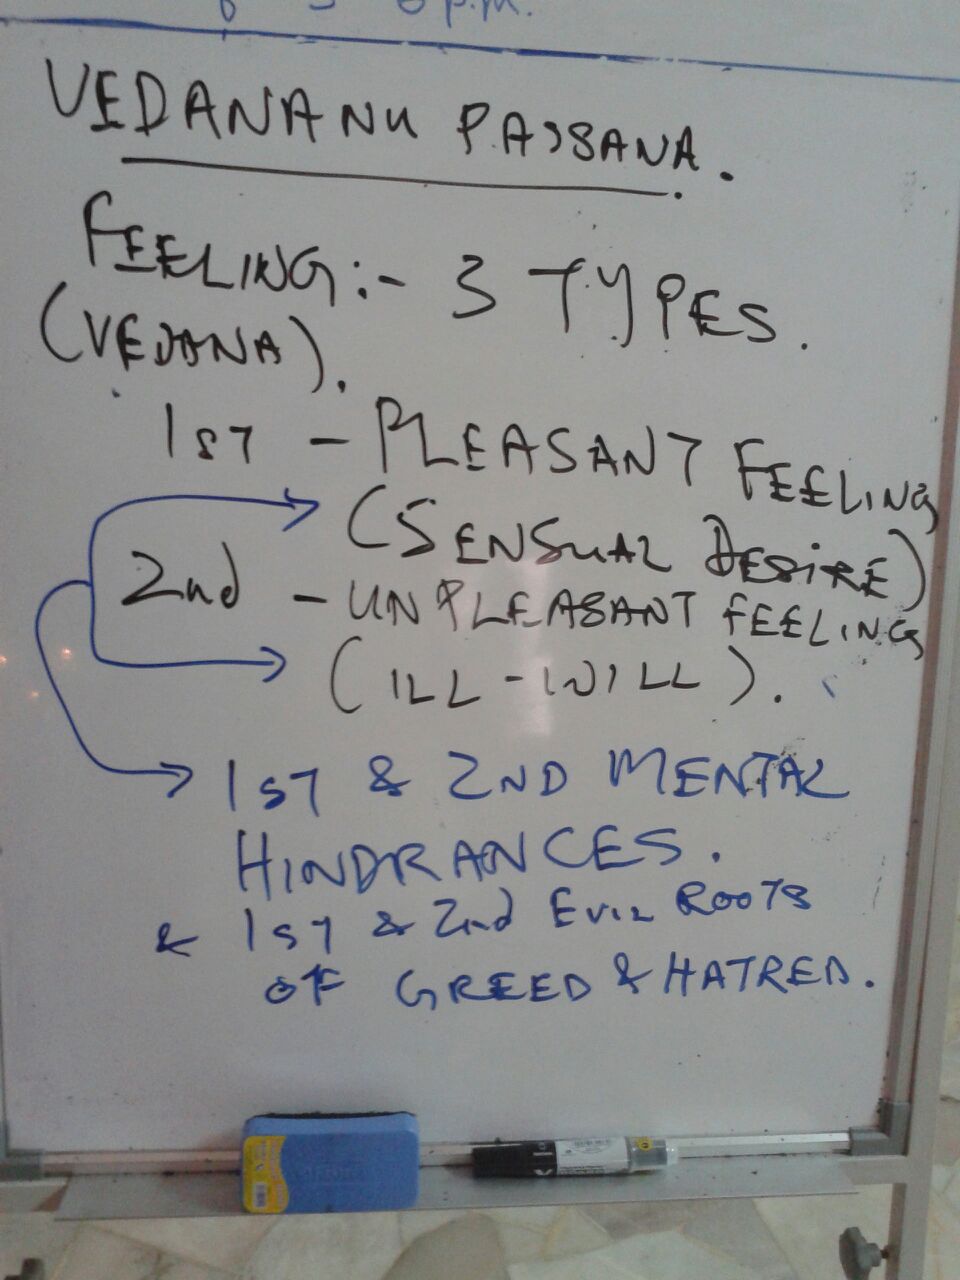 6 p.m.
VEDANANU PASSANA.
FEELING:- 3 TYPES.
(VEDANA).
1ST - PLEASANT FEELING
(SENSUAL DESIRE)
2nd - UNPLEASANT FEELING
(ILL-WILL).
1ST & 2ND MENTAL
HINDRANCES.
& 1ST & 2nd EVIL ROOTS
OF GREED & HATRED.